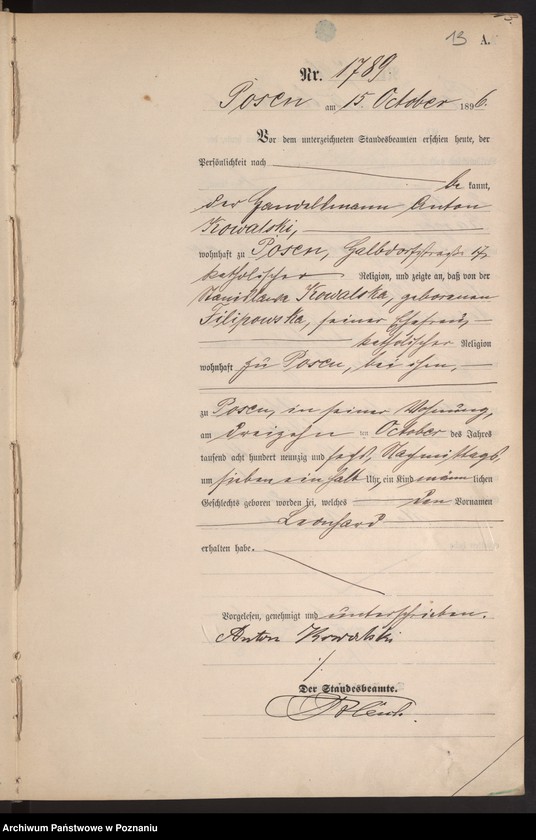 13 A.
Nr. 1789
Posen am 15. October 1896.
Vor dem unterzeichneten Standesbeamten erschien heute, der
Persönlichkeit nach
bekannt,
der Handelsmann Anton
Kowalski,
wohnhaft zu Posen, Halbdorfstraße 17,
katholischer Religion, und zeigte an, daß von der
Stanislawa Kowalska, geborenen
Filipowska, seiner Ehefrau,
katholischer Religion
wohnhaft zu Posen, bei ihm,
zu Posen, in seiner Wohnung,
am dreizehn ten October des Jahres
tausend acht hundert neunzig und sechs, Nachmittags
um sieben ein halb Uhr, ein Kind männlichen
Geschlechts geboren worden sei, welches den Vornamen
Leonhard
erhalten habe.
Vorgelesen, genehmigt und unterschrieben.
Anton Kowalski
Der Standesbeamte.
Archiwum Państwowe w Poznaniu